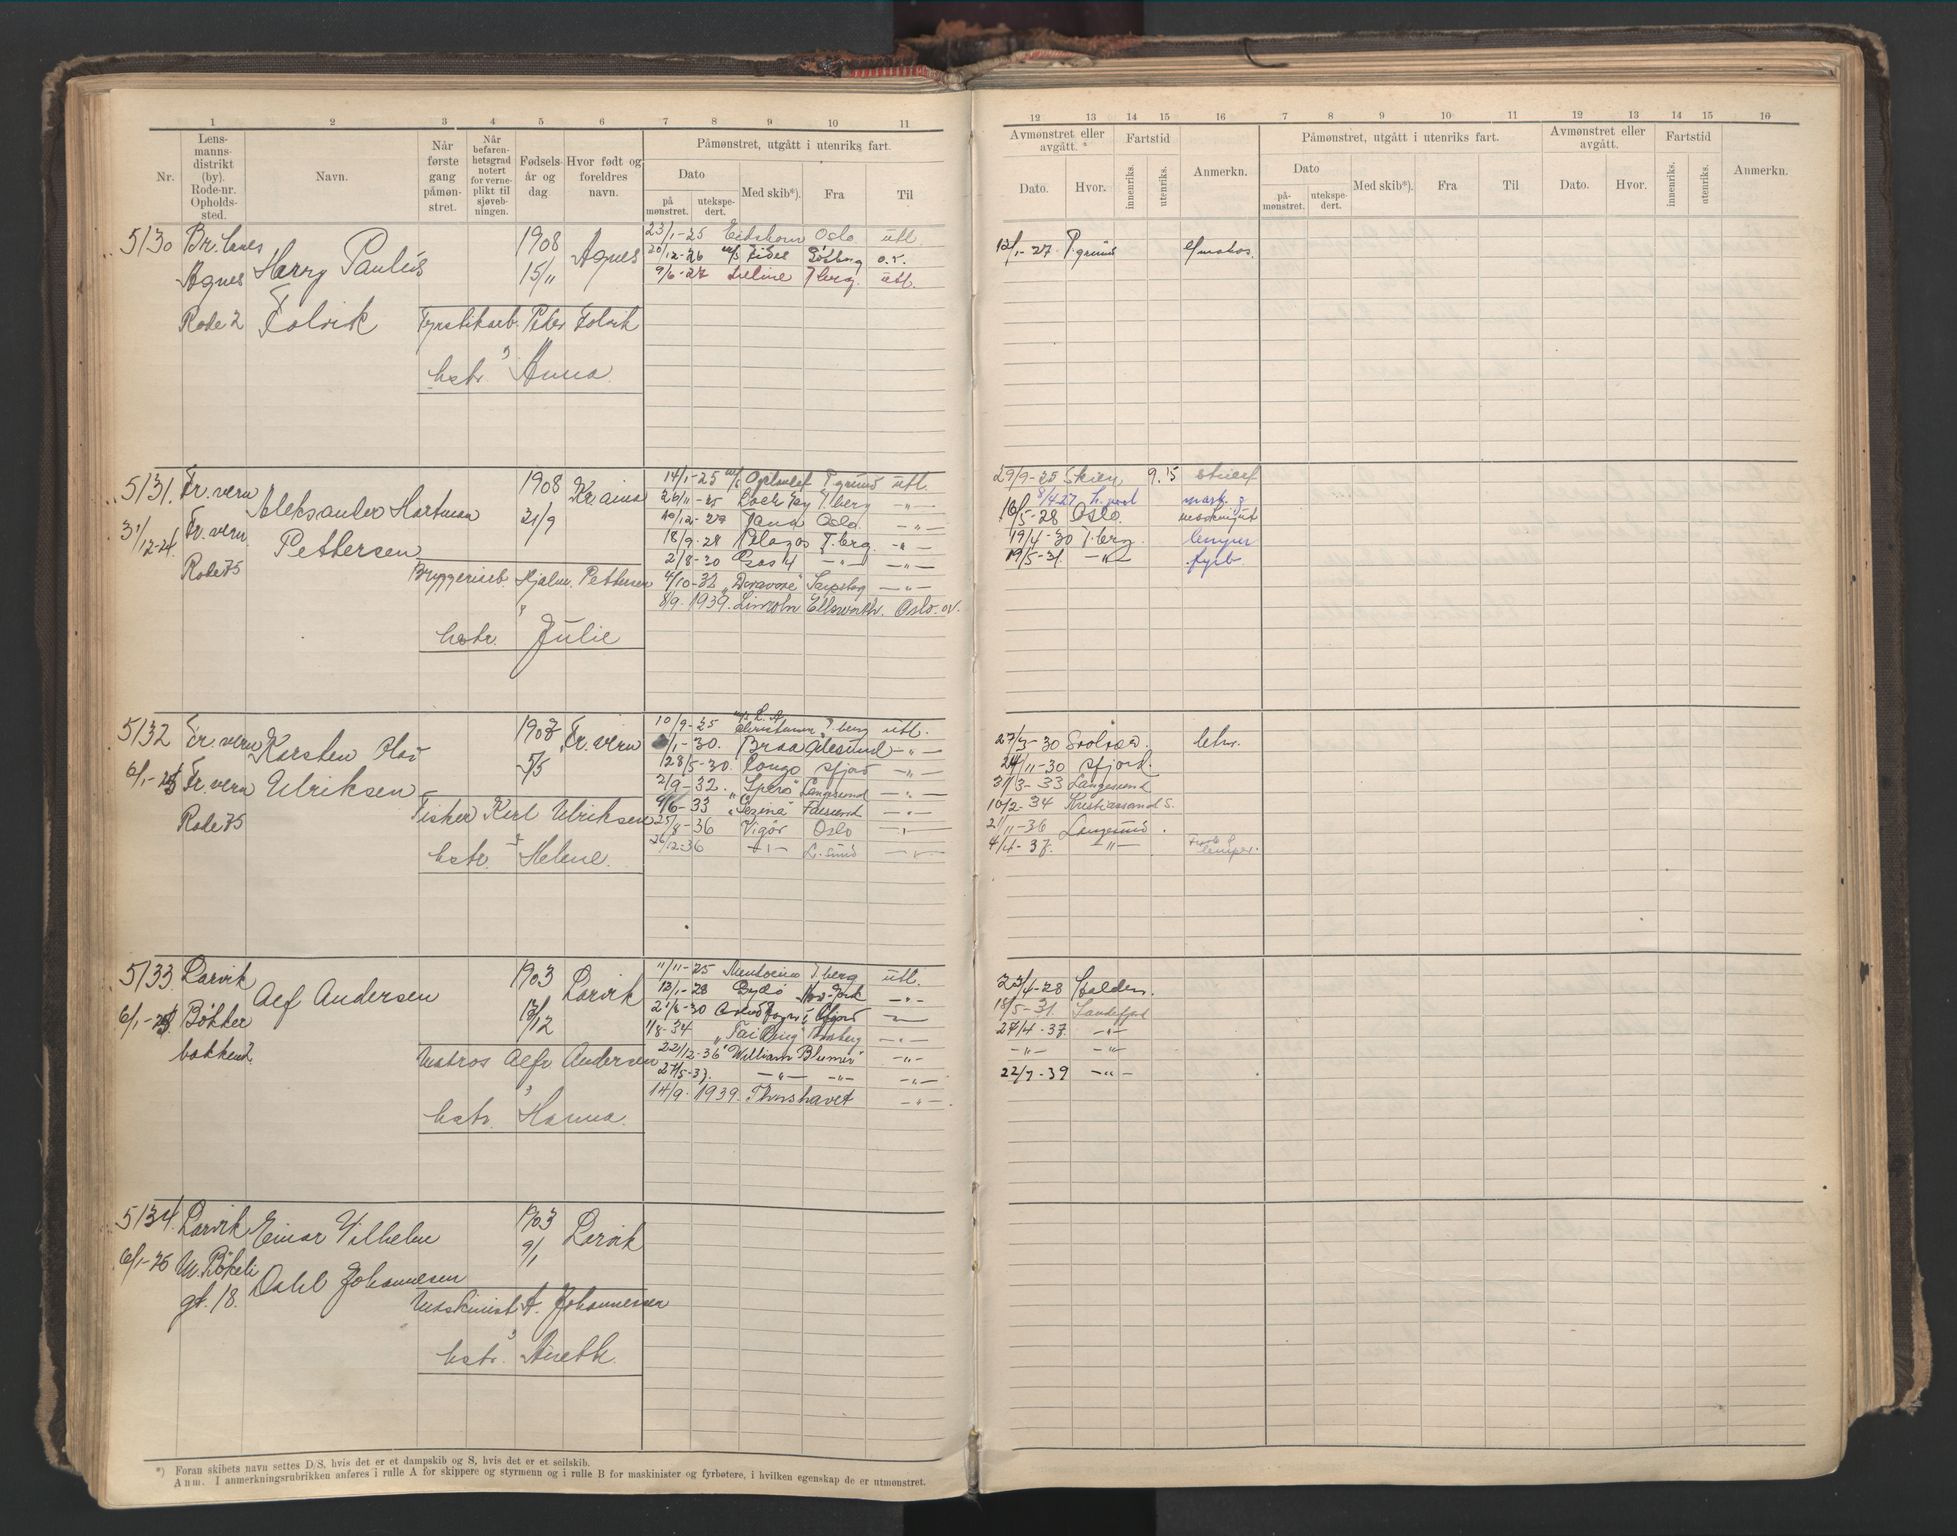 1 2 3 4 5 6 7 8 9 10 11
Nr. Lensmannsdistrikt (by). Rode-nr. Opholdssted. Navn. Når første gang påmønstret. Når befarenhetsgrad notert for verneplikt til sjøvebningen. Fødselsår og dag Hvor født og foreldres navn. Påmønstret, utgått i utenriks fart.
Dato på mønstret. utekspedert. Med skib*). Fra Til
12 13 14 15 16 7 8 9 10 11 12 13 14 15 16
Avmønstret eller avgått. Fartstid Anmerkn. Påmønstret, utgått i utenriks fart. Avmønstret eller avgått. Fartstid Anmerkn.
Dato. Hvor. innenriks. utenriks. Dato påmønstret. utekspedert. Med skib*). Fra Til Dato. Hvor. innenriks. utenriks.
5130 1908 Agnes 23/1-25 Eidshorn Oslo utl.
Agnes Harry Paulus 15/11 20/12-26 Gøtbrg o.v. 12/1-27 P.grund
9/6-27 T.berg. utl.
Rode 2 Folvik Fyrstikarb. Peder Folvik
hstr. Anna
5131. Fr.vern Aleksander Hartman 1908 Kr.ania 14/1-25 P.grund utl. 29/9-25 Skien 9.15
31/12-24 Fr.vern 21/9 26/11-25 T.berg —"— 8/4 27
Pettersen 10/12-27 Tana Oslo —"— 16/5-28 Oslo.
Rode 75 18/9-28 Pelagos T.berg. —"— 19/4-30 T.berg lemper
2/8-30 —"— —"— 19/5-31. —"— fyrb.
Bryggeriarb. Hjalm. Pettersen 4/10-32 —"—
8/9. 1939. Lincoln Ellsworth. Oslo. ov.
hstr. Julie
5132 Fr.vern Karsten Olaf 1908 Fr.vern 10/9-25 utl.
6/1-25 Fr.vern Ulriksen 5/5 1-30. Braa Ålesund —"— 27/3-30 Svolvær.
28/5-30. Congo Sfjord —"— 24/11-30 Sfjord.
Rode 75 2/9-32. "Spero" Langesund —"— 31/3-33 Langesund
Fisker Karl Ulriksen 9/6-33 —"— 10/2-34 Kristiansand S.
25/8-36 Vigør Oslo —"— 21/11-36 Langesund.
hstr. Helene. 26/12-36 —"— L.sund —"— 4/4-37. —"— lemper.
5133 Larvik Alf Andersen 1903 Larvik 11/11-25 T.berg utl. 23/4-28 Halden.
6/1-25 Bøkker 13/12 12/1-28 —"— 18/5-31. Sandefjord
bakken 2 —"— 27/4-37. —"—
1/8-34 "Tai Ping" —"— —"— —"—
Matros Alfr Andersen 22/12-36 "William Blumer" —"— 22/7-39 —"—
27/5-37. —"— —"— —"—
hstr. Hanna. 14/9. 1939. Thorshavet —"—
5134. Larvik Einar Vilhelm 1903 Larvik
6/1-26 M. Bøkeli 9/1
gt. 18. Dahl Johannesen
Maskinist A. Johannessen
hstr.
*) Foran skibets navn settes D/S, hvis det er et dampskib og S, hvis det er et seilskib.
Anm. I anmerkningsrubrikken anføres i rulle A for skippere og styrmenn og i rulle B for maskinister og fyrbøtere, i hvilken egenskap de er utmønstret.